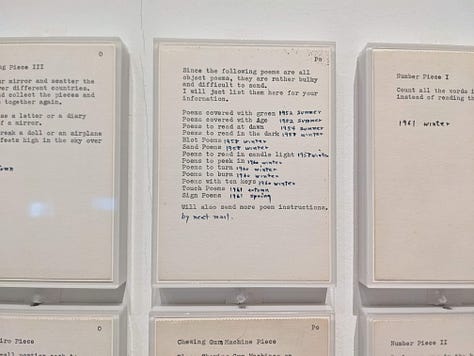 O
ng Piece III
ur mirror and scatter the
ver different countries.
nd collect the pieces and
e together again.
se a letter or a diary
of a mirror.
reak a doll or an airplane
feets high in the sky over
Po
Since the following poems are all
object poems, they are rather bulky
and difficult to send.
I will just list them here for your
information.
Poems covered with green 1952 summer
Poems covered with age 1952 summer
Poems to read at dawn 1954 summer
Poems to read in the dark 1958 winter
Blot Poems 1958 winter
Sand Poems 1958 winter
Poems to read in candle light 1958 winter
Poems to peek in 1960 winter
Poems to turn 1960 winter
Poems to burn 1960 winter
Poems with ten keys 1960 winter
Touch Poems 1961 autumn
Sign Poems 1961 spring
Will also send more poem instructions.
by next mail.
Number Piece I
Count all the words i
instead of reading
1961 winter
O
iro Piece
Po
Chewing Gum Machine Piece
Number Piece II